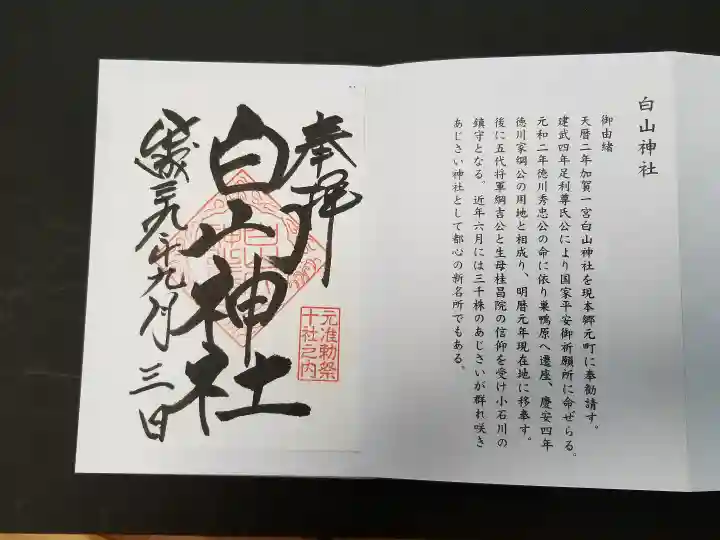 白山神社
御由緒
天暦二年加賀一宮白山神社を現本郷元町に奉勧請す。
建武四年足利尊氏公により国家平安御祈願所に命ぜらる。
元和二年徳川秀忠公の命に依り巣鴨原へ遷座、慶安四年
徳川家綱公の用地と相成り、明暦元年現在地に移奉す。
後に五代将軍綱吉公と生母桂昌院の信仰を受け小石川の
鎮守となる。近年六月には三千株のあじさいが群れ咲き
あじさい神社として都心の新名所でもある。
奉拝
元准勅祭
十社之内
白山神社
年九月三日